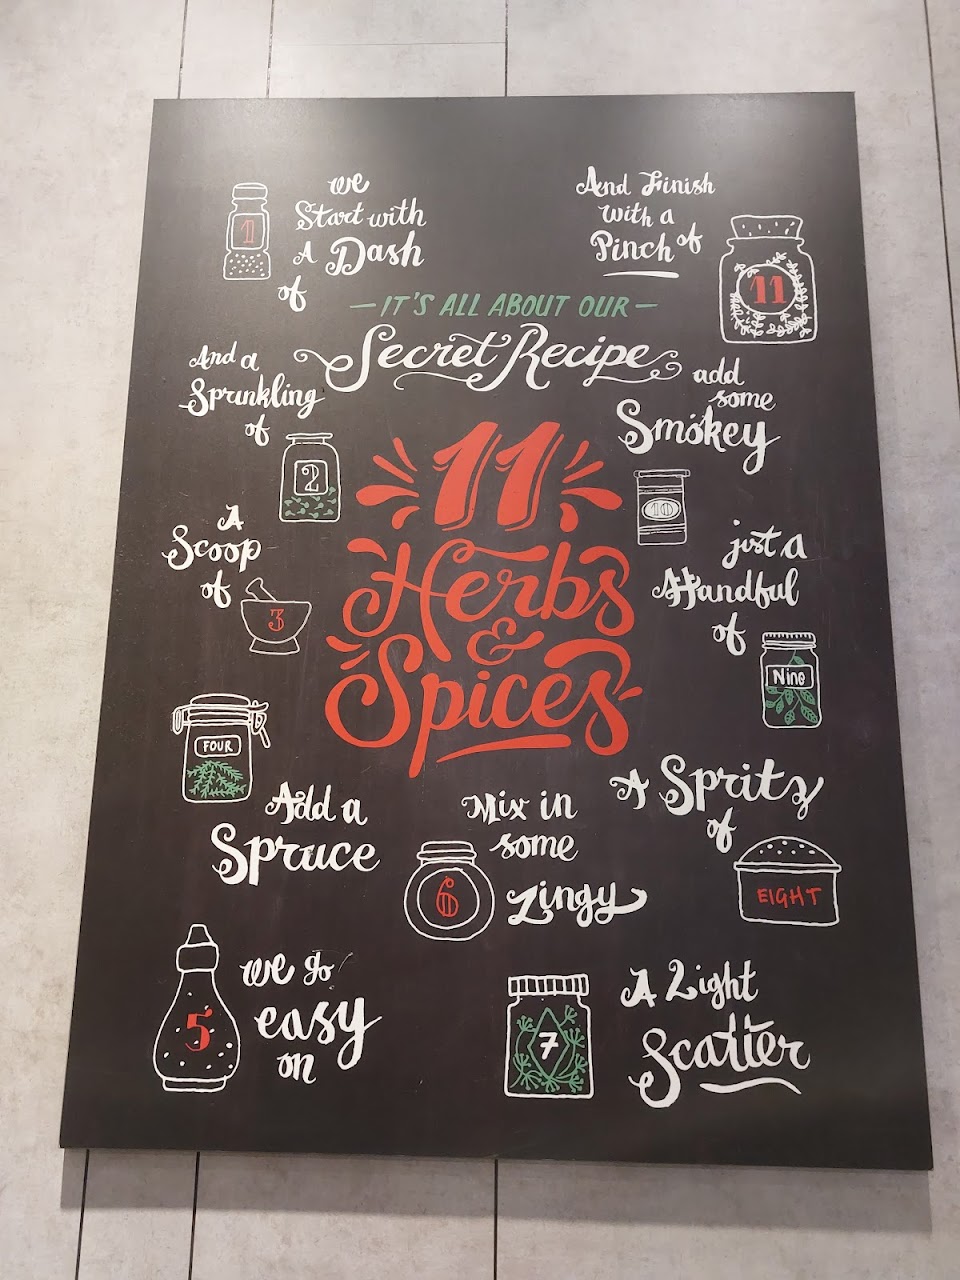 we
Start with
A Dash
of
1
— IT'S ALL ABOUT OUR —
Secret Recipe
11
Herbs
&
Spices
And a
Sprinkling
of
2
A
Scoop
of
3
FOUR
Add a
Spruce
5
we go
easy
on
Mix in
some
6
Zingy
7
A Light
Scatter
A Spritz
of
EIGHT
just a
Handful
of
Nine
add
some
Smokey
10
And Finish
with a
Pinch of
11